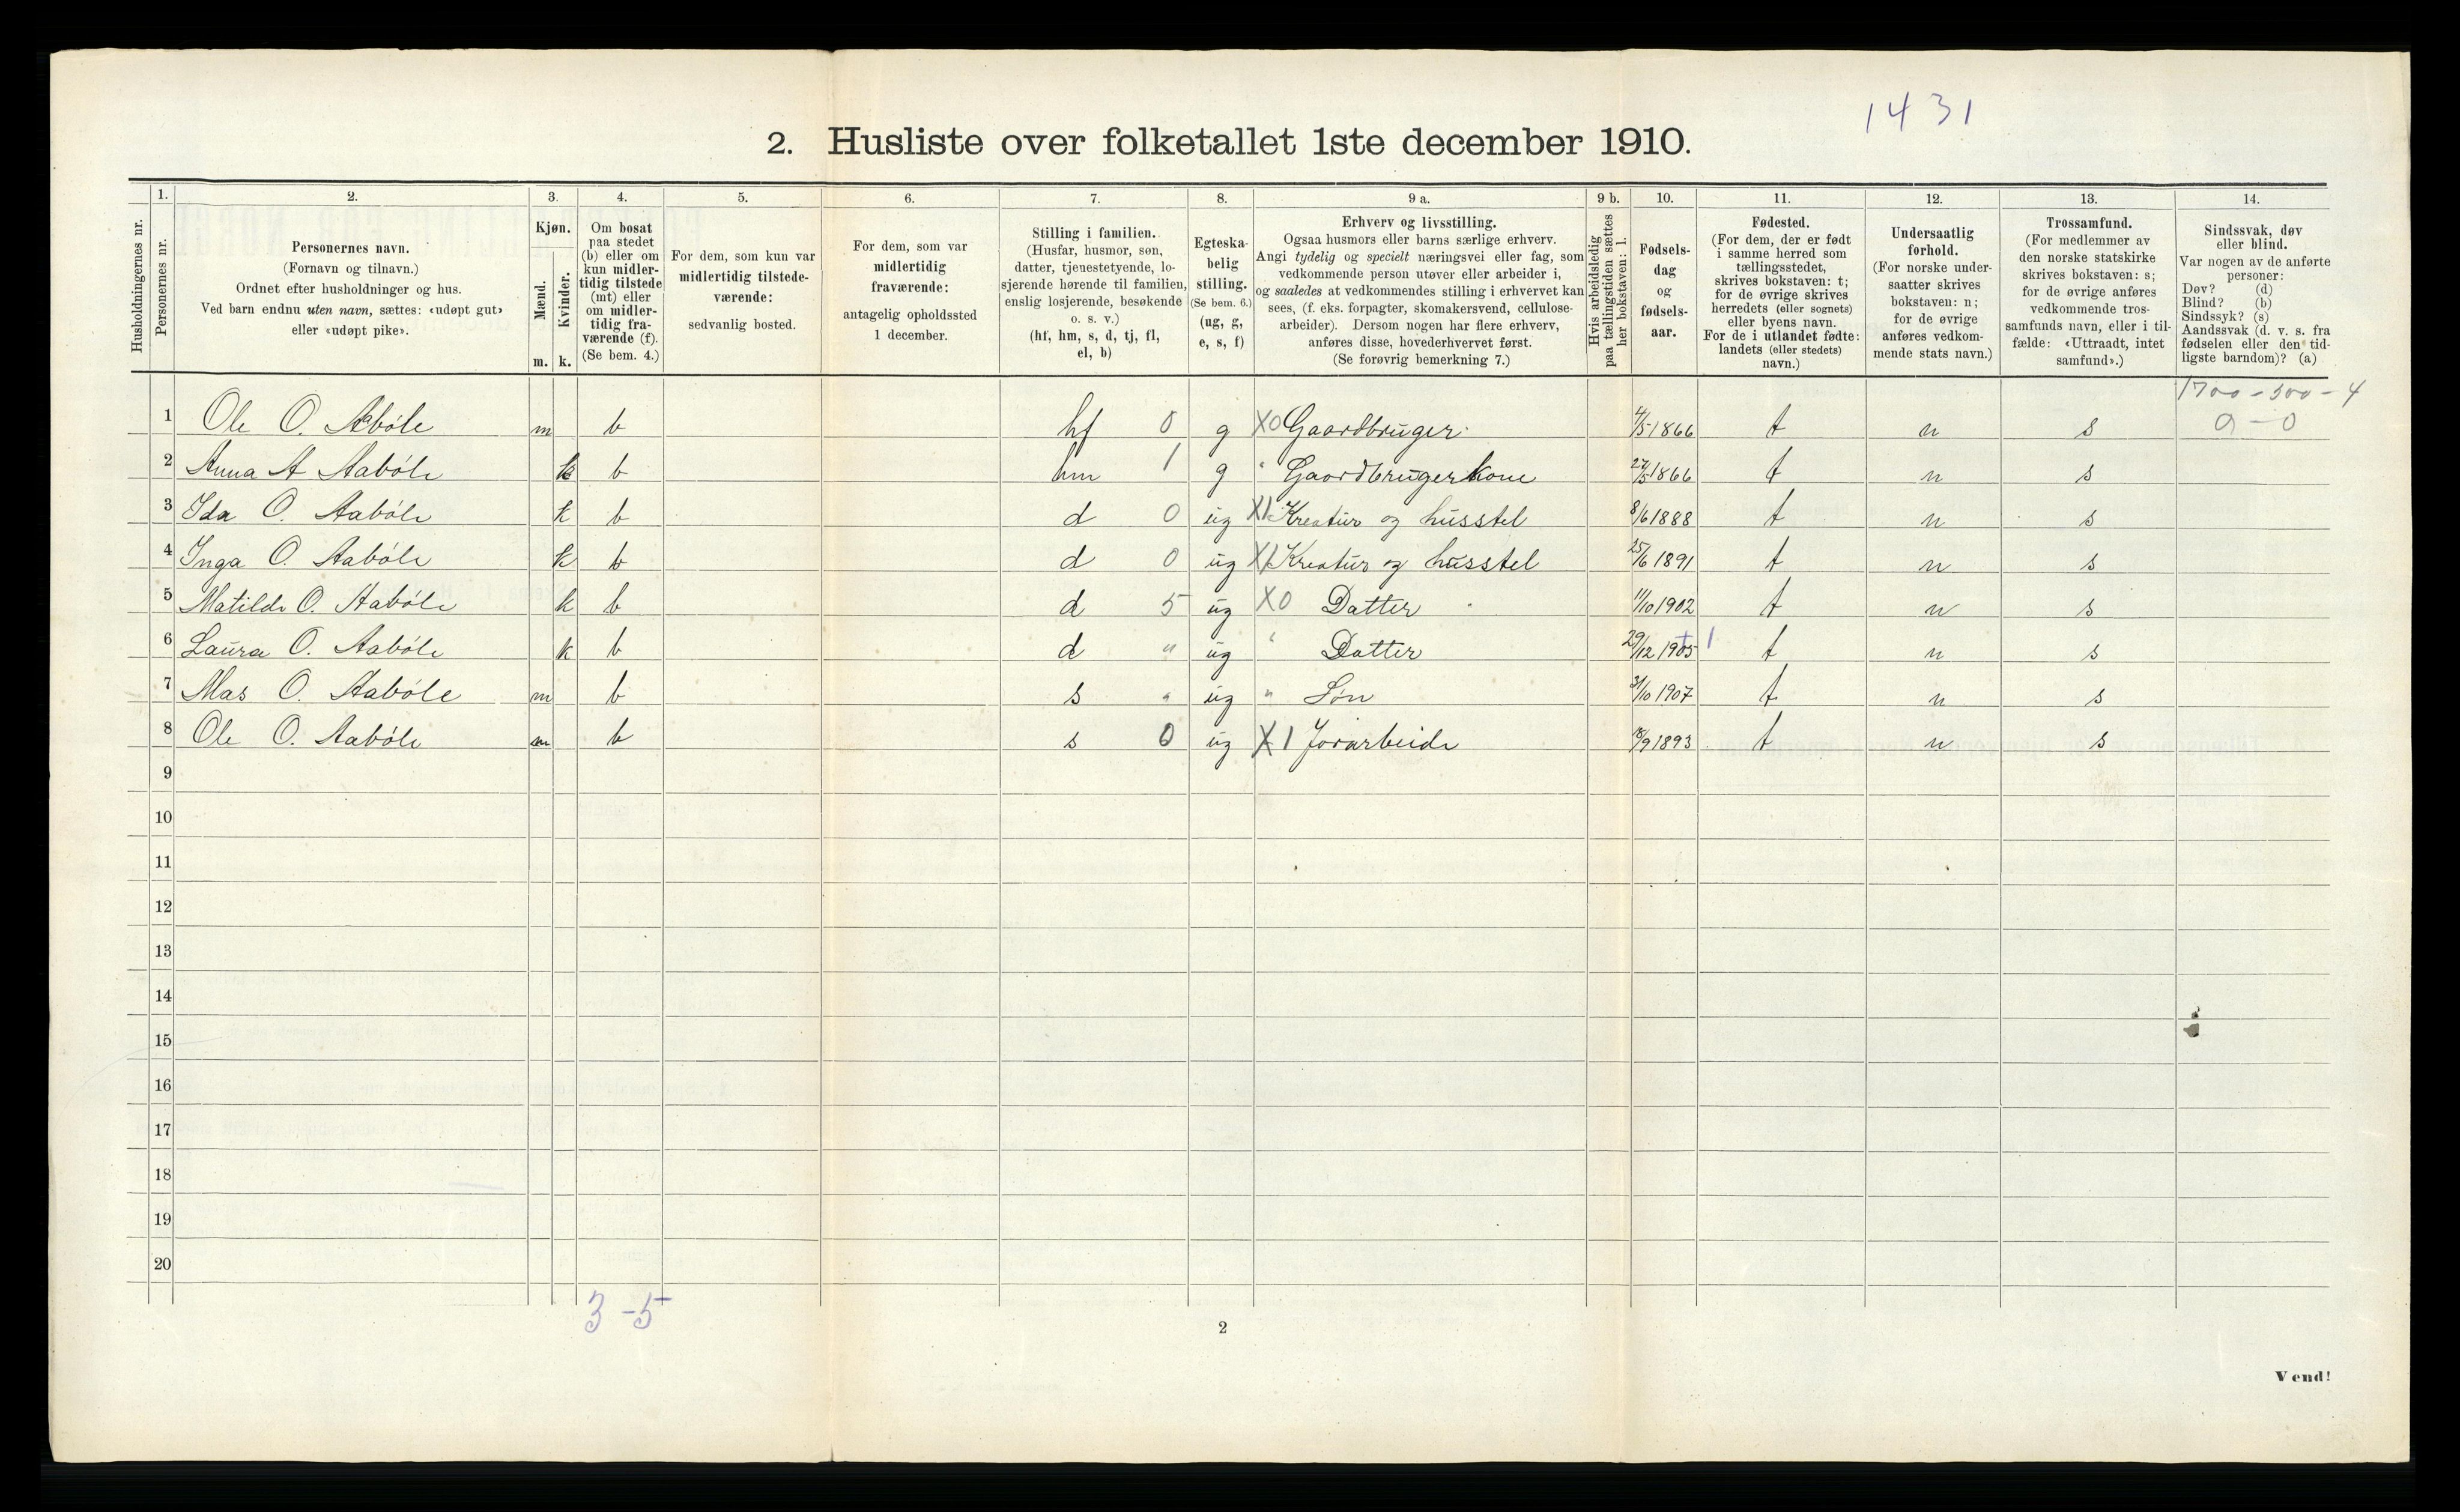 1431
2. Husliste over folketallet 1ste december 1910.
Husholdningernes nr.
1. Personernes nr.
2. Personernes navn.
(Fornavn og tilnavn.)
Ordnet efter husholdninger og hus.
Ved barn endnu uten navn, sættes: «udøpt gut»
eller «udøpt pike».
3. Kjøn.
Mænd. m.
Kvinder. k.
4. Om bosat
paa stedet
(b) eller om
kun midler-
tidig tilstede
(mt) eller
om midler-
tidig fra-
værende (f).
(Se bem. 4.)
5. For dem, som kun var
midlertidig tilstede-
værende:
sedvanlig bosted.
6. For dem, som var
midlertidig
fraværende:
antagelig opholdssted
1 december.
7. Stilling i familien.
(Husfar, husmor, søn,
datter, tjenestetyende, lo-
sjerende hørende til familien,
enslig losjerende, besøkende
o. s. v.)
(hf, hm, s, d, tj, fl,
el, b)
8. Egteska-
belig
stilling.
(Se bem. 6.)
(ug, g,
e, s, f)
9 a. Erhverv og livsstilling.
Ogsaa husmors eller barns særlige erhverv.
Angi tydelig og specielt næringsvei eller fag, som
vedkommende person utøver eller arbeider i,
og saaledes at vedkommendes stilling i erhvervet kan
sees, (f. eks. forpagter, skomakersvend, cellulose-
arbeider). Dersom nogen har flere erhverv,
anføres disse, hovederhvervet først.
(Se forøvrig bemerkning 7.)
9 b. Hvis arbeidsledig
paa tællingstiden sættes
her bokstaven: l.
10. Fødsels-
dag
og
fødsels-
aar.
11. Fødested.
(For dem, der er født
i samme herred som
tællingsstedet,
skrives bokstaven: t;
for de øvrige skrives
herredets (eller sognets)
eller byens navn.
For de i utlandet fødte:
landets (eller stedets)
navn.)
12. Undersaatlig
forhold.
(For norske under-
saatter skrives
bokstaven: n;
for de øvrige
anføres vedkom-
mende stats navn.)
13. Trossamfund.
(For medlemmer av
den norske statskirke
skrives bokstaven: s;
for de øvrige anføres
vedkommende tros-
samfunds navn, eller i til-
fælde: «Uttraadt, intet
samfund».)
14. Sindssvak, døv
eller blind.
Var nogen av de anførte
personer:
Døv? (d)
Blind? (b)
Sindssyk? (s)
Aandssvak (d. v. s. fra
fødselen eller den tid-
ligste barndom)? (a)
1700 - 300 - 4
1 Ole O. Aabøle m b hf 0 g X0 Gaardbruger 4/5 1866 t n s 0 - 0
2 Anna A Aabøle k b hm 1 g " Gaardbrugerkone 27/5 1866 t n s
3 Ida O. Aabøle k b d 0 ug X1 Kreatur og husstel 8/6 1888 t n s
4 Inga O. Aabøle k b d 0 ug X1 Kreatur og husstel 25/6 1891 t n s
5 Matilde O. Aabøle k b d 5 ug X0 Datter 11/10 1902 t n s
6 Laura O. Aabøle k b d " ug " Datter 29/12 1905 1 t n s
7 Mas O. Aabøle m b s " ug " Søn 31/10 1907 t n s
8 Ole O. Aabøle m b s 0 ug X1 Jorarbeide 8/9 1893 t n s
9
10
11
12
13
14
15
16
17
18
19
20
3 - 5
2
Vend!